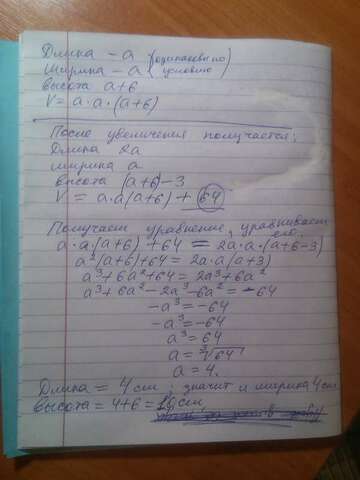 Длина – a (одинаковы по
ширина – a условию)
высота a+6
V = a·a·(a+6)
После увеличения получается:
Длина 2a
ширина a
высота (a+6)-3
V = a·a(a+6) + 64
Получаем уравнение, уравниваем
его.
a·a·(a+6) + 64 = 2a·a·(a+6-3)
a²(a+6)+64 = 2a·a(a+3)
a³+6a²+64 = 2a³+6a²
a³+6a²-2a³-6a² = -64
-a³ = -64
-a³ = -64
a³ = 64
a = ³√64
a = 4.
Длина = 4 см; значит и ширина 4 см
Высота = 4+6 = 10 см,